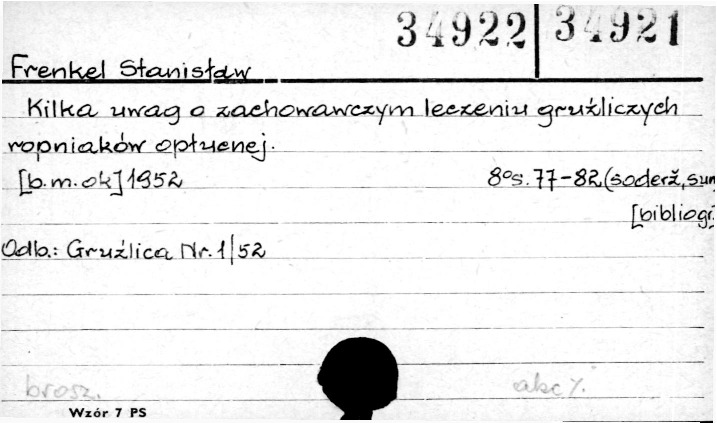 34922 34921
Frenkel Stanisław
Kilka uwag o zachowawczym leczeniu gruźliczych
ropniaków opłucnej.
[b.m.ok] 1952 8°s. 77-82 (soderž, sum
[bibliogr.
Odb.: Gruźlica Nr. 1/52
brosz. abc %.
Wzór 7 PS